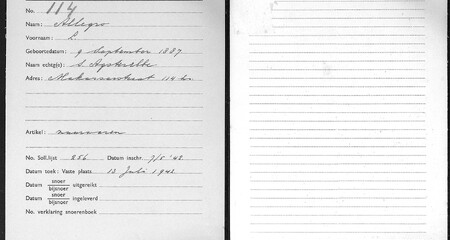 No. 114
Naam: Allegro
Voornaam: L
Geboortedatum: 9 September 1887
Naam echtg(e): S. Agsteribbe
Adres: straat 114 hs.
Artikel:
No. Soll.lijst 256 Datum inschr. 7/5 '42
Datum toek: Vaste plaats 12 Juli 1942
Datum snoer / bijsnoer uitgereikt
Datum snoer / bijsnoer ingeleverd
No. verklaring snoerenboek